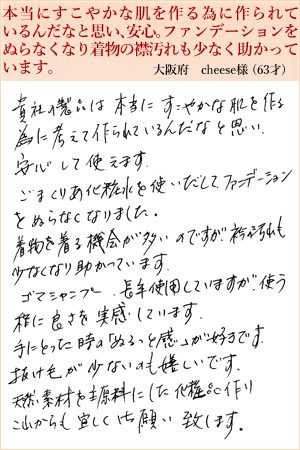 本当にすこやかな肌を作る為に作られて
いるんだなと思い、安心。ファンデーションを
ぬらなくなり着物の襟汚れも少なく助かって
います。
大阪府　cheese様（63才）
貴社の製品は本当にすこやかな肌を作る
為に考えて作られているんだなと思い
安心して使えます。
ごまくりあ化粧水を使いだしてファンデーション
をぬらなくなりました。
着物を着る機会が多いのですが衿が汚れも
少なくなり助かっています。
ゴマシャンプー、長年使用していますが、使う
程に良さを実感しています。
手にとった時の「ぬるっと感」が好きです。
抜け毛が少ないのも嬉しいです。
天然素材を主原料にした化粧品作り
これからも宜しくお願い致します。